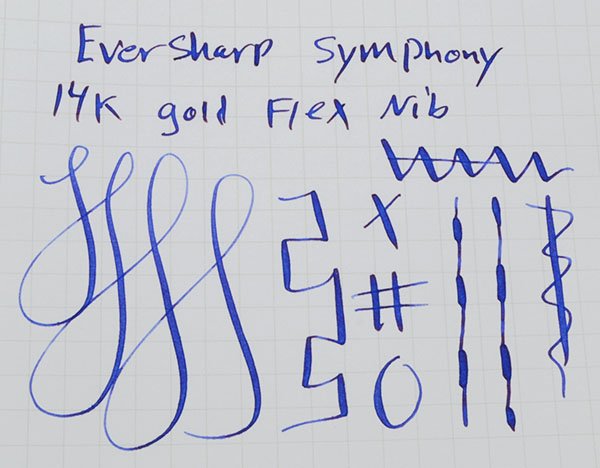 Eversharp Symphony
14K gold Flex Nib
X
#
O